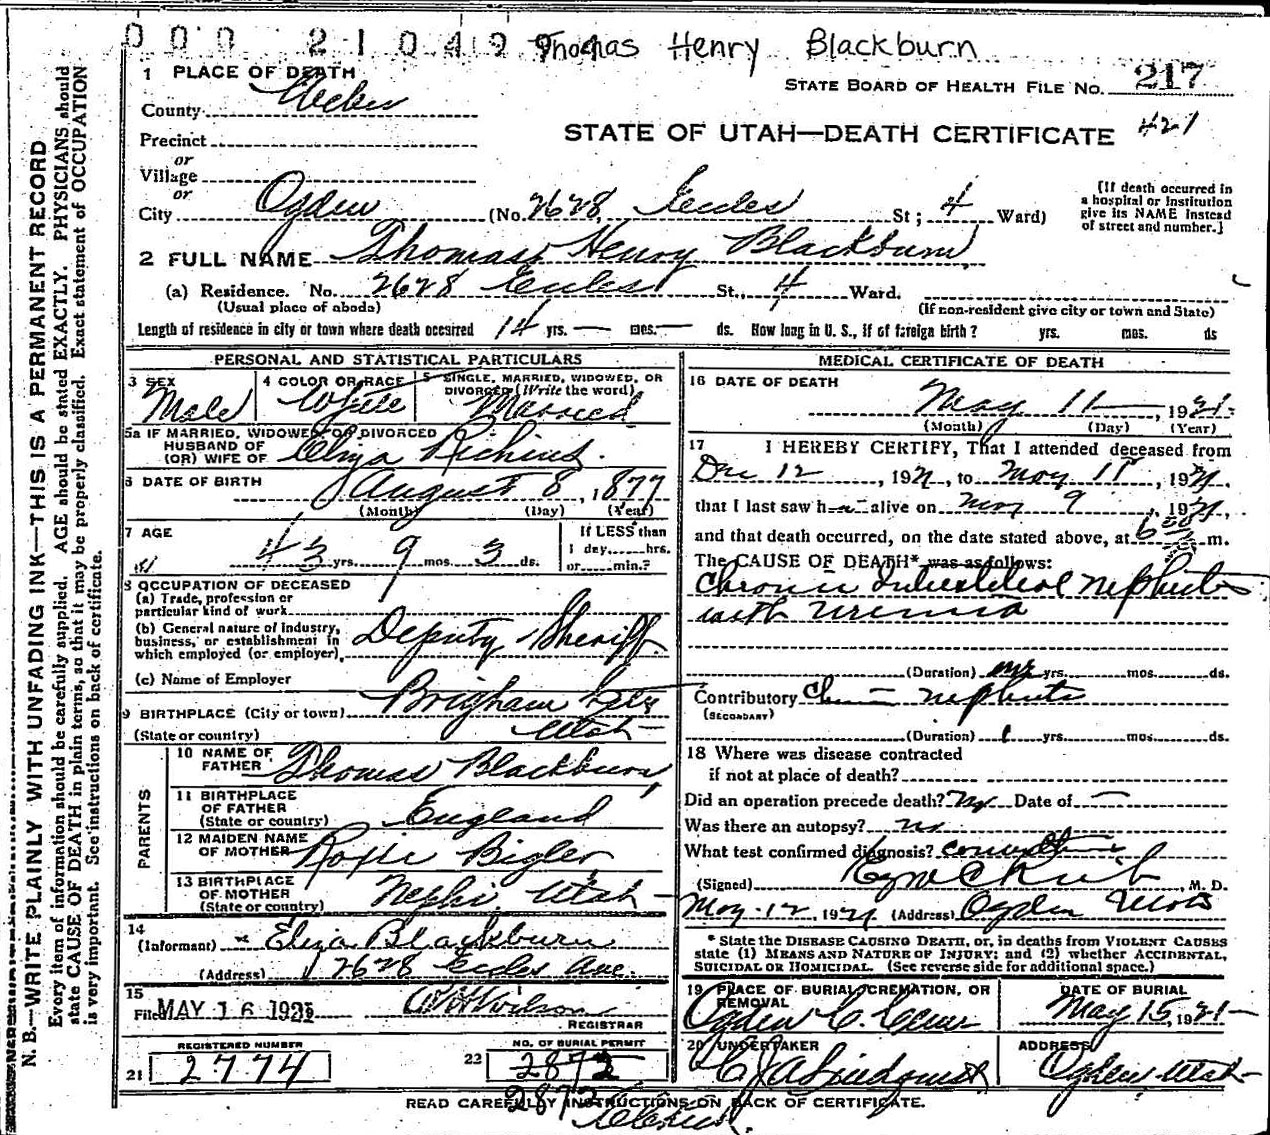 000 210499 Thomas Henry Blackburn
1 PLACE OF DEATH
STATE BOARD OF HEALTH FILE NO. 217
County Weber
STATE OF UTAH—DEATH CERTIFICATE 421
Precinct
or
Village
or
City Ogden (No. 2628 Eccles St; 4 Ward)
[If death occurred in
a hospital or institution
give its NAME instead
of street and number.]
2 FULL NAME Thomas Henry Blackburn
(a) Residence. No. 2628 Eccles St., 4 Ward.
(Usual place of abode) (If non-resident give city or town and State)
Length of residence in city or town where death occurred 14 yrs. — mos. — ds. How long in U. S., if of foreign birth? yrs. mos. ds
PERSONAL AND STATISTICAL PARTICULARS
3 SEX Male
4 COLOR OR RACE White
5 SINGLE, MARRIED, WIDOWED, OR
DIVORCED (Write the word)
Married
5a IF MARRIED, WIDOWED, OR DIVORCED
HUSBAND OF
(OR) WIFE OF Eliza Richins.
6 DATE OF BIRTH August 8, 1877
(Month) (Day) (Year)
7 AGE
43 yrs. 9 mos. 3 ds.
If LESS than
1 day,......hrs.
or......min.?
8 OCCUPATION OF DECEASED
(a) Trade, profession or
particular kind of work
(b) General nature of industry,
business, or establishment in
which employed (or employer) Deputy Sheriff
(c) Name of Employer
9 BIRTHPLACE (City or town) Brigham City
(State or country) Utah
PARENTS
10 NAME OF
FATHER Thomas Blackburn
11 BIRTHPLACE
OF FATHER
(State or country) England
12 MAIDEN NAME
OF MOTHER Roxie Bigler
13 BIRTHPLACE
OF MOTHER
(State or country) Nephi Utah
14
(Informant) Eliza Blackburn
(Address) 2628 Eccles Ave.
15
Filed MAY 16 1921 W W Wilson
REGISTRAR
REGISTERED NUMBER
21 2774
NO. OF BURIAL PERMIT
22 2872
2872
MEDICAL CERTIFICATE OF DEATH
16 DATE OF DEATH
May 11, 1921
(Month) (Day) (Year)
17 I HEREBY CERTIFY, That I attended deceased from
Dec 12, 1921, to May 11, 1921,
that I last saw h alive on May 9, 1921,
and that death occurred, on the date stated above, at 6 m.
The CAUSE OF DEATH* was as follows:
Chronic Interstitial Nephritis
with Uremia
(Duration) yrs. mos. ds.
Contributory Chronic nephritis
(SECONDARY)
(Duration) 1 yrs. mos. ds.
18 Where was disease contracted
if not at place of death?
Did an operation precede death? No Date of —
Was there an autopsy? no
What test confirmed diagnosis?
(Signed) M. D.
May 12, 1921 (Address) Ogden Utah
* State the DISEASE CAUSING DEATH, or, in deaths from VIOLENT CAUSES
state (1) MEANS AND NATURE OF INJURY; and (2) whether ACCIDENTAL,
SUICIDAL OR HOMICIDAL. (See reverse side for additional space.)
19 PLACE OF BURIAL, CREMATION, OR
REMOVAL
Ogden C. Cem
DATE OF BURIAL
May 15, 1921
20 UNDERTAKER
C J A Lindquist
ADDRESS
Ogden Utah
READ CAREFULLY INSTRUCTIONS ON BACK OF CERTIFICATE.
N. B.—WRITE PLAINLY WITH UNFADING INK—THIS IS A PERMANENT RECORD
Every item of information should be carefully supplied. AGE should be stated EXACTLY. PHYSICIANS should
state CAUSE OF DEATH in plain terms, so that it may be properly classified. Exact statement of OCCUPATION
is very important. See instructions on back of certificate.